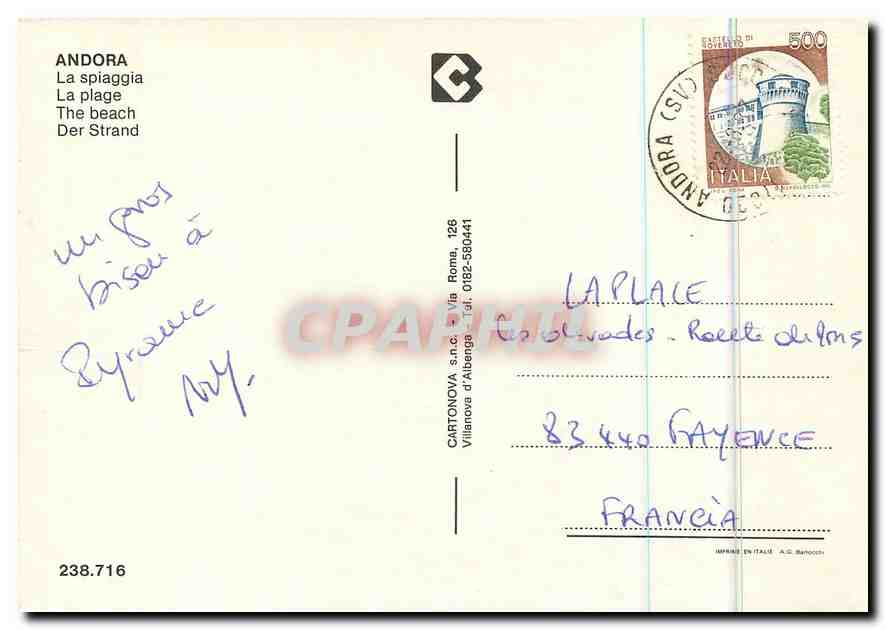 ANDORA
La spiaggia
La plage
The beach
Der Strand
un gros
bisou à
Pyrame
CARTONOVA s.n.c. - Via Roma, 126
Villanova d'Albenga - Tel. 0182-580441
CASTELLO DI
ROVERETO
500
ITALIA
ANDORA (SV)
CPAPHIL
LAPLACE
Les - Route de
83440 FAYENCE
FRANCIA
IMPRIMÉ EN ITALIE A.G. Barlocchi
238.716